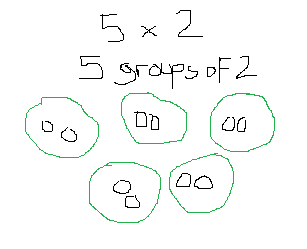 5 x 2
5 groups of 2